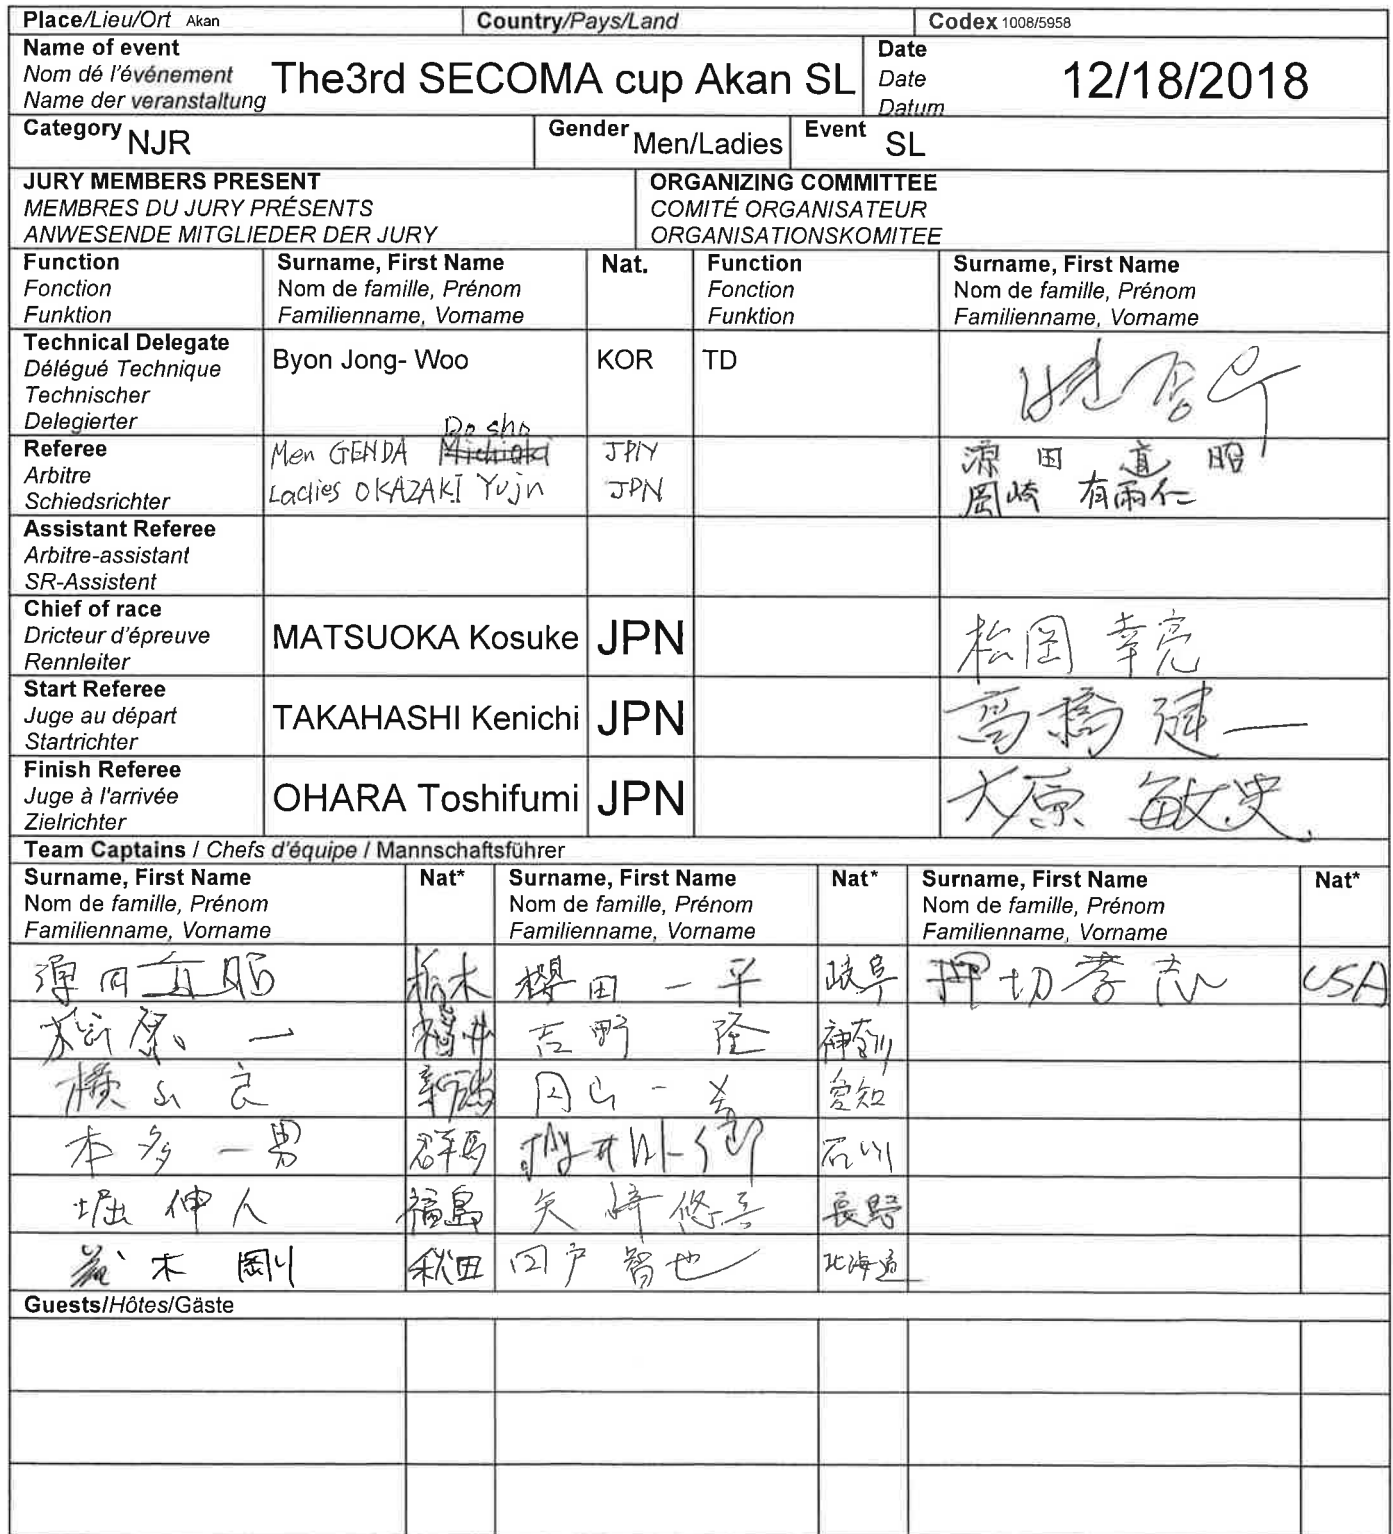 Place/Lieu/Ort Akan Country/Pays/Land Codex 1008/5958
Name of event
Nom dé l'événement
Name der veranstaltung
The3rd SECOMA cup Akan SL
Date
Date
Datum
12/18/2018
Category NJR Gender Men/Ladies Event SL
JURY MEMBERS PRESENT
MEMBRES DU JURY PRÉSENTS
ANWESENDE MITGLIEDER DER JURY
ORGANIZING COMMITTEE
COMITÉ ORGANISATEUR
ORGANISATIONSKOMITEE
Function Surname, First Name Nat. Function Surname, First Name
Fonction Nom de famille, Prénom Fonction Nom de famille, Prénom
Funktion Familienname, Vorname Funktion Familienname, Vorname
Technical Delegate
Délégué Technique
Technischer
Delegierter
Byon Jong- Woo KOR TD
Referee
Arbitre
Schiedsrichter
Do sho
Men GENDA JPN 源田 道昭
Ladies OKAZAKI Yujn JPN 岡崎 有雨仁
Assistant Referee
Arbitre-assistant
SR-Assistent
Chief of race
Dricteur d'épreuve
Rennleiter
MATSUOKA Kosuke JPN 松岡 幸亮
Start Referee
Juge au départ
Startrichter
TAKAHASHI Kenichi JPN 高橋 健一
Finish Referee
Juge à l'arrivée
Zielrichter
OHARA Toshifumi JPN 大原 敏史
Team Captains / Chefs d'équipe / Mannschaftsführer
Surname, First Name Nat* Surname, First Name Nat* Surname, First Name Nat*
Nom de famille, Prénom Nom de famille, Prénom Nom de famille, Prénom
Familienname, Vorname Familienname, Vorname Familienname, Vorname
栃木 櫻田 一平 岐阜 押切孝志 USA
一 福井 吉野 隆 神奈川
横山 良 新潟 愛知
本多 一男 群馬 石川
堀 伸人 福島 矢崎 悠 長野
木 剛 秋田 田戸 智也 北海道
Guests/Hôtes/Gäste